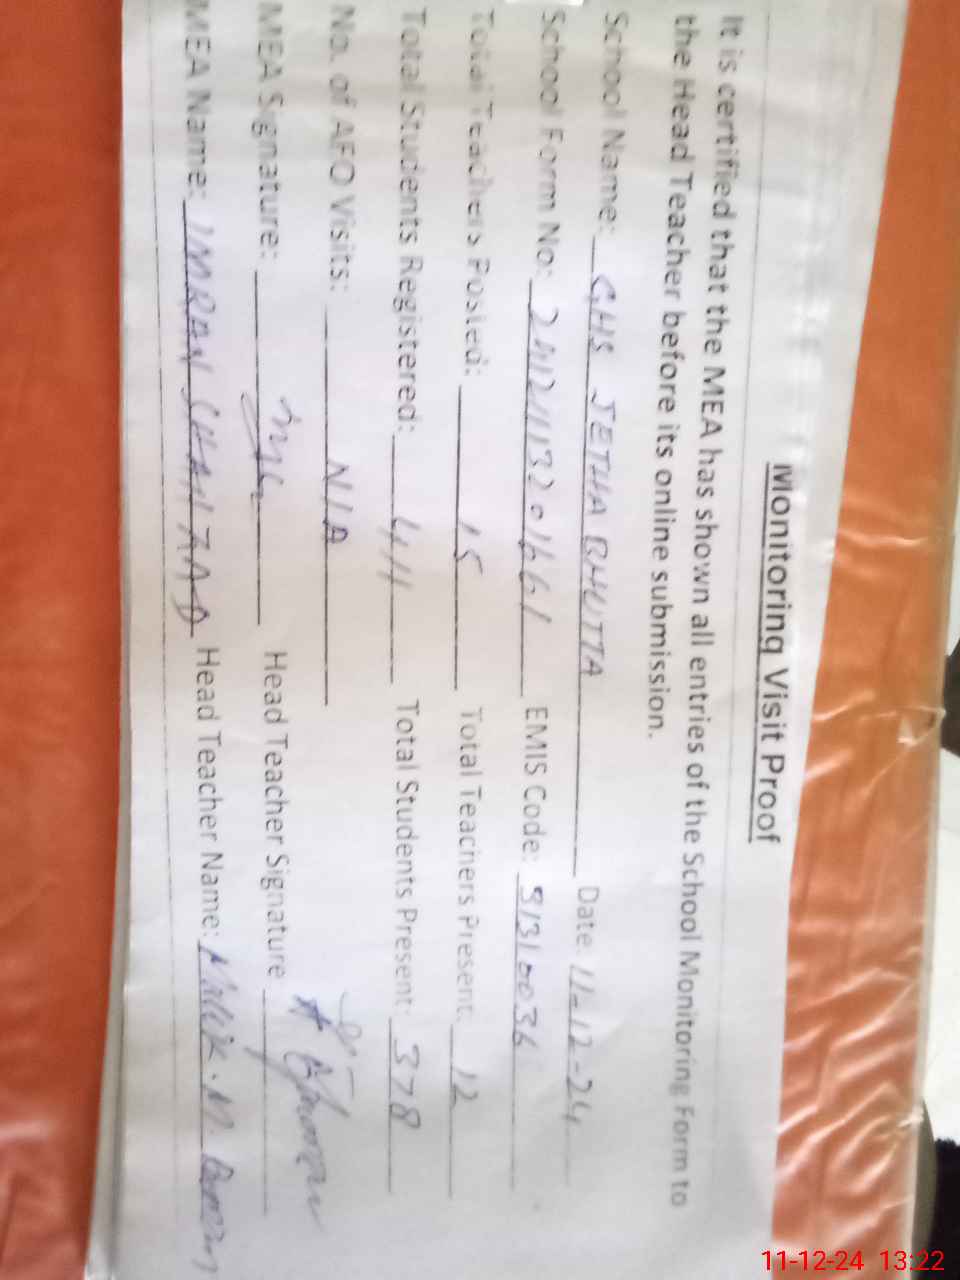 Monitoring Visit Proof
It is certified that the MEA has shown all entries of the School Monitoring Form to
the Head Teacher before its online submission.
School Name: GHS JETHA BHUTTA Date: 11-12-24
School Form No: EMIS Code: 31310036
Total Teachers Posted: 15 Total Teachers Present: 12
Total Students Registered: 411 Total Students Present: 378
No. of AEO Visits: N/A
MEA Signature: Head Teacher Signature
MEA Name: IMRAN SHAHZAD Head Teacher Name: Malik. M.
11-12-24 13:22